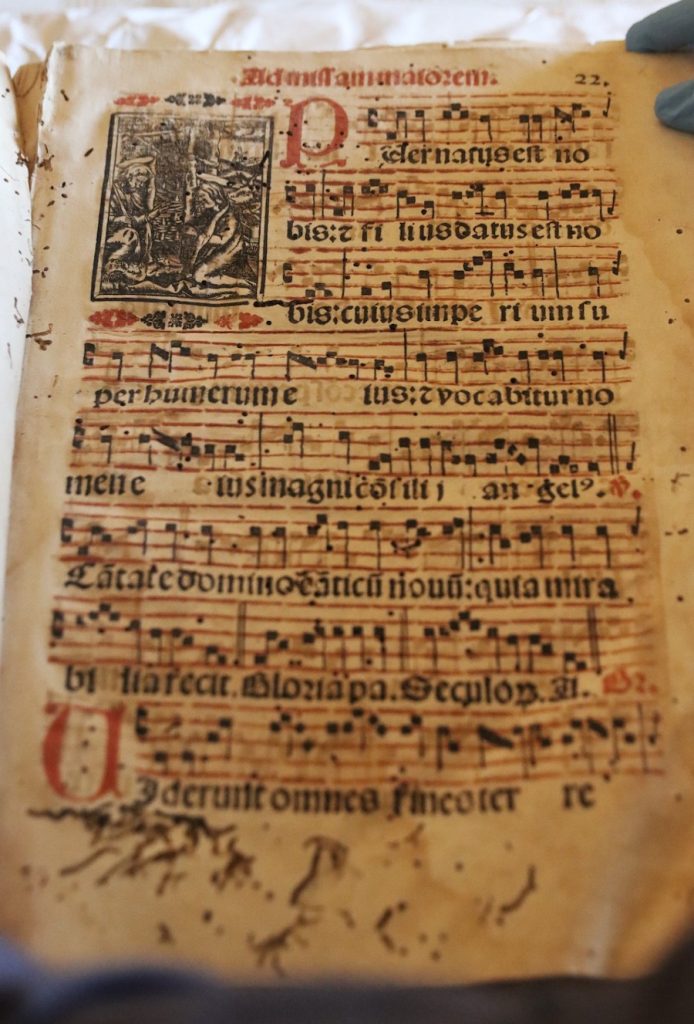 Ad missam maiorem. 22.
P
Uer natus est no
bis: ⁊ fi lius datus est no
bis: cuius impe ri um su
per humerum e ius: ⁊ vocabitur no
men e ius magni cōsili j an gelꝰ. ℣.
Cātate domino cāticū nouū: quia mira
bi lia fecit. Gloria pa. Seculoꝝ. A. Gr.
U
Iderunt omnes fines ter re